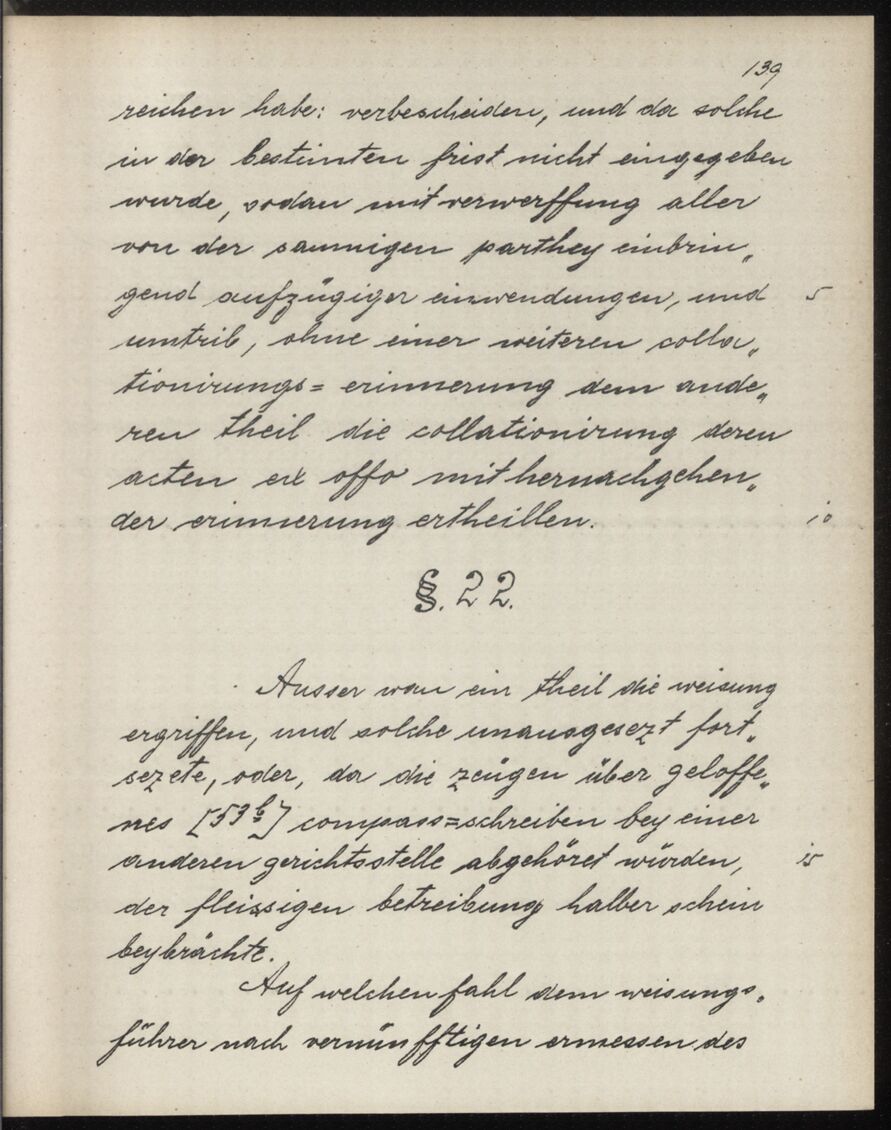 139
reichen habe: verbescheiden, und da solche
in der bestimten frist nicht eingegeben
wurde, sodan mit verwerffung aller
von der saumigen parthey einbrin„
gend aufzügiger einwendungen, und 5
umtrib, ohne einer weiteren colla„
tionirungs= erinnerung dem ande„
ren theil die collationirung deren
acten ex offo mit hernachgehen„
der erinnerung ertheillen. 10
§. 22.
Ausser wan ein theil die weisung
ergriffen, und solche unausgesezt fort„
sezete, oder, da die zeügen über geloffe„
nes [53 b] compass=schreiben bey einer
anderen gerichtsstelle abgehöret würden, 15
der fleissigen betreibung halber schein
beybrächte.
Auf welchen fahl dem weisungs„
führer nach vernünfftigen ermessen des